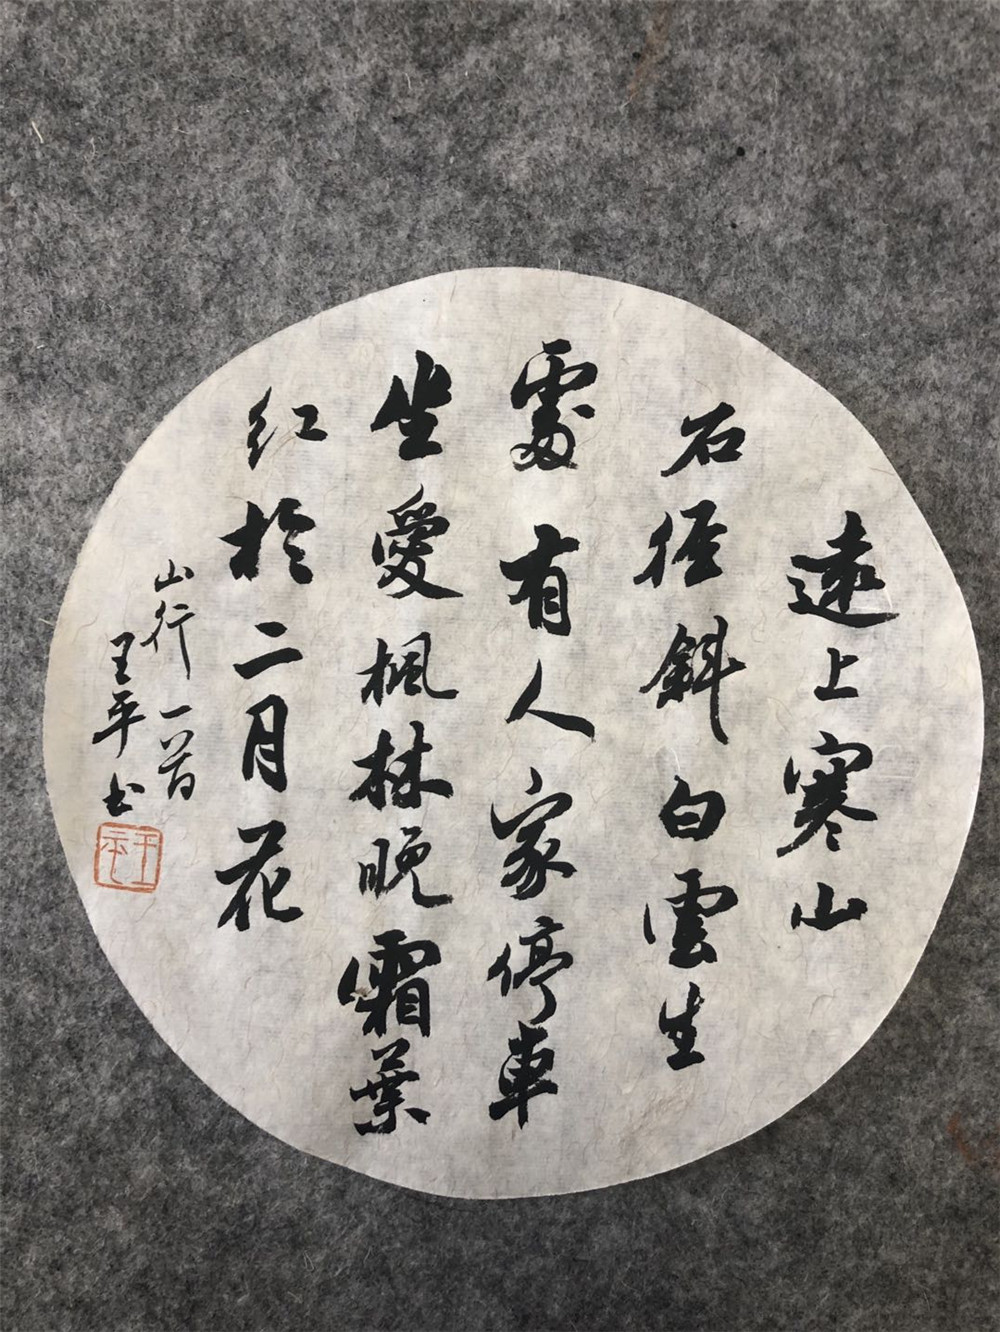 遠上寒山
石径斜白雲生
處有人家停車
坐愛楓林晚霜葉
红於二月花
山行一首
王平书
王平